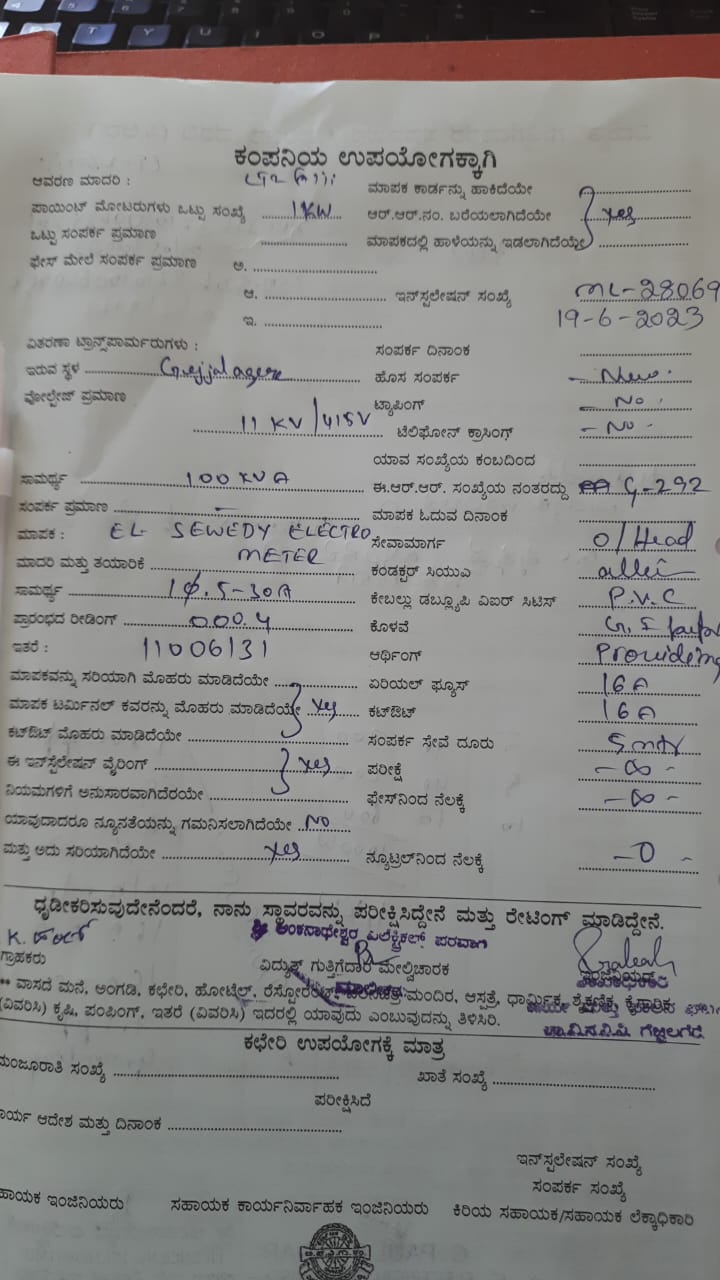 ಕಂಪನಿಯ ಉಪಯೋಗಕ್ಕಾಗಿ
ಆವರಣ ಮಾದರಿ : ಮಾಪಕ ಕಾರ್ಡನ್ನು ಹಾಕಿದೆಯೇ
ಪಾಯಿಂಟ್ ಮೋಟರುಗಳು ಒಟ್ಟು ಸಂಖ್ಯೆ 1KW ಆರ್.ಆರ್.ನಂ. ಬರೆಯಲಾಗಿದೆಯೇ yes
ಒಟ್ಟು ಸಂಪರ್ಕ ಪ್ರಮಾಣ ಮಾಪಕದಲ್ಲಿ ಹಾಳೆಯನ್ನು ಇಡಲಾಗಿದೆಯೇ
ಫೇಸ್ ಮೇಲೆ ಸಂಪರ್ಕ ಪ್ರಮಾಣ ಅ.
ಆ. ಇನ್‌ಸ್ಪಲೇಷನ್ ಸಂಖ್ಯೆ ML-28069
ಇ. 19-6-2023
ವಿತರಣಾ ಟ್ರಾನ್ಸ್‌ಪಾರ್ಮರುಗಳು : ಸಂಪರ್ಕ ದಿನಾಂಕ
ಇರುವ ಸ್ಥಳ Gejjalagere ಹೊಸ ಸಂಪರ್ಕ - New.
ವೋಲ್ಟೇಜ್ ಪ್ರಮಾಣ ಟ್ಯಾಪಿಂಗ್ - No.
11 KV/415V ಟೆಲಿಫೋನ್ ಕ್ರಾಸಿಂಗ್ - No.
ಯಾವ ಸಂಖ್ಯೆಯ ಕಂಬದಿಂದ
ಸಾಮರ್ಥ್ಯ 100 KVA ಈ.ಆರ್.ಆರ್. ಸಂಖ್ಯೆಯ ನಂತರದ್ದು G-292
ಸಂಪರ್ಕ ಪ್ರಮಾಣ - ಮಾಪಕ ಓದುವ ದಿನಾಂಕ
ಮಾಪಕ : EL SEWEDY ELECTRO ಸೇವಾಮಾರ್ಗ O/Head
ಮಾದರಿ ಮತ್ತು ತಯಾರಿಕೆ METER ಕಂಡಕ್ಟರ್ ಸಿಯುಎ
ಸಾಮರ್ಥ್ಯ 1φ.5-30A ಕೇಬಲ್ಲು ಡಬ್ಲ್ಯೂಪಿ ವಿಐರ್ ಸಿಟಿಸ್ P.V.C
ಪ್ರಾರಂಭದ ರೀಡಿಂಗ್ 000.4 ಕೊಳವೆ G.I
ಇತರೆ : 11006131 ಆರ್ಥಿಂಗ್ Provideing
ಮಾಪಕವನ್ನು ಸರಿಯಾಗಿ ಮೊಹರು ಮಾಡಿದೆಯೇ ಏರಿಯಲ್ ಫ್ಯೂಸ್ 16A
ಮಾಪಕ ಟರ್ಮಿನಲ್ ಕವರನ್ನು ಮೊಹರು ಮಾಡಿದೆಯೇ yes ಕಟ್‌ಔಟ್ 16A
ಕಟ್‌ಔಟ್ ಮೊಹರು ಮಾಡಿದೆಯೇ ಸಂಪರ್ಕ ಸೇವೆ ದೂರು 5 mtr
ಈ ಇನ್‌ಸ್ಟಲೇಷನ್ ವೈರಿಂಗ್ yes ಪರೀಕ್ಷೆ -∞-
ನಿಯಮಗಳಿಗೆ ಅನುಸಾರವಾಗಿದೆರಯೇ ಫೇಸ್‌ನಿಂದ ನೆಲಕ್ಕೆ -∞-
ಯಾವುದಾದರೂ ನ್ಯೂನತೆಯನ್ನು ಗಮನಿಸಲಾಗಿದೆಯೇ NO
ಮತ್ತು ಅದು ಸರಿಯಾಗಿದೆಯೇ yes ನ್ಯೂಟ್ರಲ್‌ನಿಂದ ನೆಲಕ್ಕೆ -0-
ಧೃಡೀಕರಿಸುವುದೇನೆಂದರೆ, ನಾನು ಸ್ಥಾವರವನ್ನು ಪರೀಕ್ಷಿಸಿದ್ದೇನೆ ಮತ್ತು ರೇಟಿಂಗ್ ಮಾಡಿದ್ದೇನೆ.
ಶ್ರೀ ಅಂಕನಾಥೇಶ್ವರ ಎಲೆಕ್ಟ್ರಿಕಲ್ ಪರವಾಗಿ
ಗ್ರಾಹಕರು ವಿದ್ಯುತ್ ಗುತ್ತಿಗೆದಾರ ಮೇಲ್ವಿಚಾರಕ
** ವಾಸದ ಮನೆ, ಅಂಗಡಿ, ಕಛೇರಿ, ಹೋಟೆಲ್, ಮಾಲೀಕರು ಮಂದಿರ, ಆಸ್ಪತ್ರೆ, ಧಾರ್ಮಿಕ, ಶೈಕ್ಷಣಿಕ, ಕೈಗಾರಿಕ
(ವಿವರಿಸಿ) ಕೃಷಿ, ಪಂಪಿಂಗ್, ಇತರೆ (ವಿವರಿಸಿ) ಇದರಲ್ಲಿ ಯಾವುದು ಎಂಬುವುದನ್ನು ತಿಳಿಸಿರಿ.
ಚಾ.ವಿ.ಸ.ನಿ.ನಿ ಗೆಜ್ಜಲಗೆರೆ
ಕಛೇರಿ ಉಪಯೋಗಕ್ಕೆ ಮಾತ್ರ
ಮಂಜೂರಾತಿ ಸಂಖ್ಯೆ ಖಾತೆ ಸಂಖ್ಯೆ
ಪರೀಕ್ಷಿಸಿದೆ
ಾರ್ಯ ಆದೇಶ ಮತ್ತು ದಿನಾಂಕ
ಇನ್‌ಸ್ಪಲೇಷನ್ ಸಂಖ್ಯೆ
ಸಂಪರ್ಕ ಸಂಖ್ಯೆ
ಹಾಯಕ ಇಂಜಿನಿಯರು ಸಹಾಯಕ ಕಾರ್ಯನಿರ್ವಾಹಕ ಇಂಜಿನಿಯರು ಕಿರಿಯ ಸಹಾಯಕ/ಸಹಾಯಕ ಲೆಕ್ಕಾಧಿಕಾರಿ